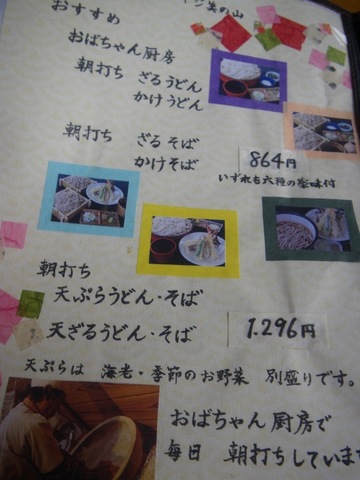 おすすめ
おばちゃん厨房
朝打ち ざるうどん
かけうどん
朝打ち ざるそば
かけそば
864円
いずれも六種の薬味付
朝打ち
天ぷらうどん・そば
天ざるうどん・そば
1.296円
天ぷらは 海老・季節のお野菜 別盛りです。
おばちゃん厨房で
毎日 朝打ちしています